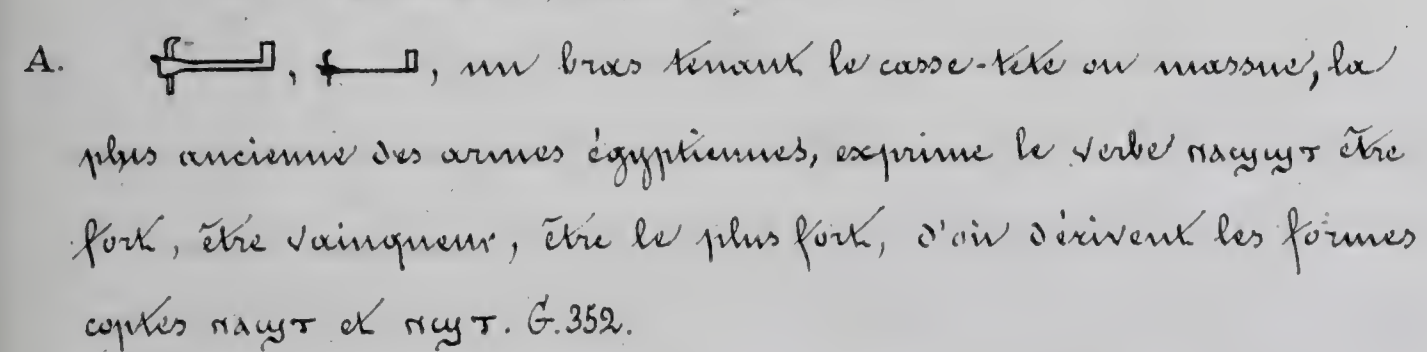 A. 𓂡, 𓂡, un bras tenant le casse-tête ou massue, la
plus ancienne des armes égyptiennes, exprime le verbe ⲛⲁϣϣⲧ être
fort, être vainqueur, être le plus fort, d'où dérivent les formes
coptes ⲛⲁϣⲧ et ⲛϣⲧ. G. 352.